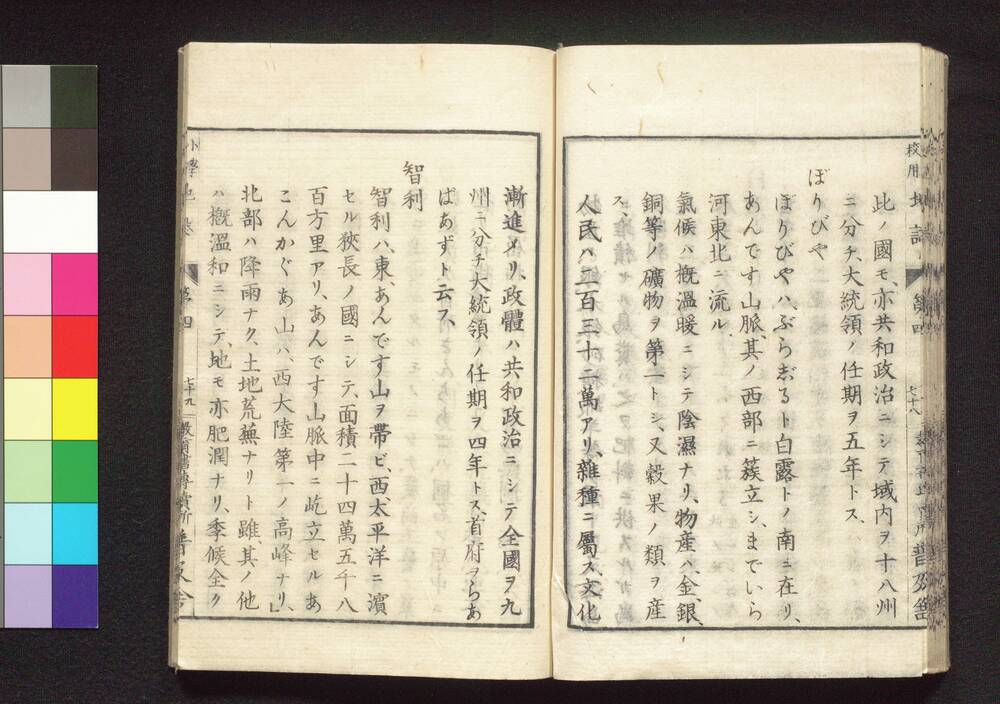 此ノ國モ、亦共和政治ニシテ域内ヲ十八州
ニ分チ、大統領ノ任期ヲ五年トス、
ぼりびや
ぼりびやハ、ぶらぢるト白露トノ南ニ在リ、
あんです山脈、其ノ西部ニ簇立シ、までいら
河東北ニ流ル、
氣候ハ概溫暖ニシテ陰濕ナリ、物産ハ、金、銀、
銅等ノ礦物ヲ第一トシ、又穀果ノ類ヲ産
ス、
人民ハ二百三十二萬アリ、雜種ニ屬ス、文化
漸進メリ、政體ハ共和政治ニシテ全國ヲ九
州ニ分チ大統領ノ任期ヲ四年トス、首府ヲらあ
ぱあずト云フ、
智利
智利ハ、東、あんです山ヲ帶ビ、西、太平洋ニ濱
セル狹長ノ國ニシテ、面積二十四萬五千八
百方里アリ、あんです山脈中ニ屹立セルあ
こんかぐあ山ハ、西大陸第一ノ高峰ナリ、
北部ハ降雨ナク、土地荒蕪ナリト雖、其ノ他
ハ概溫和ニシテ、地モ亦肥潤ナリ、季候全ク
第四
七十九